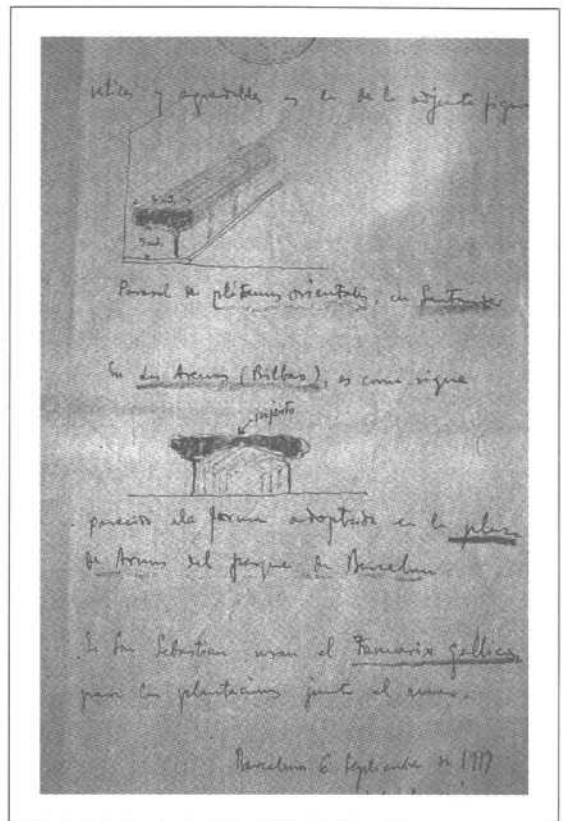 y agradables es la de la adjunta figura
5 m.
Parasol de plátanos orientales, en Santander
En Las Arenas (Bilbao), es como sigue
injerto
parecido a la forma adoptada en la plaza
de Armas del parque de Barcelona.
En San Sebastian usan el Tamarix gallica,
para las plantaciones junto al mar.
Barcelona 6 Septiembre de 1917